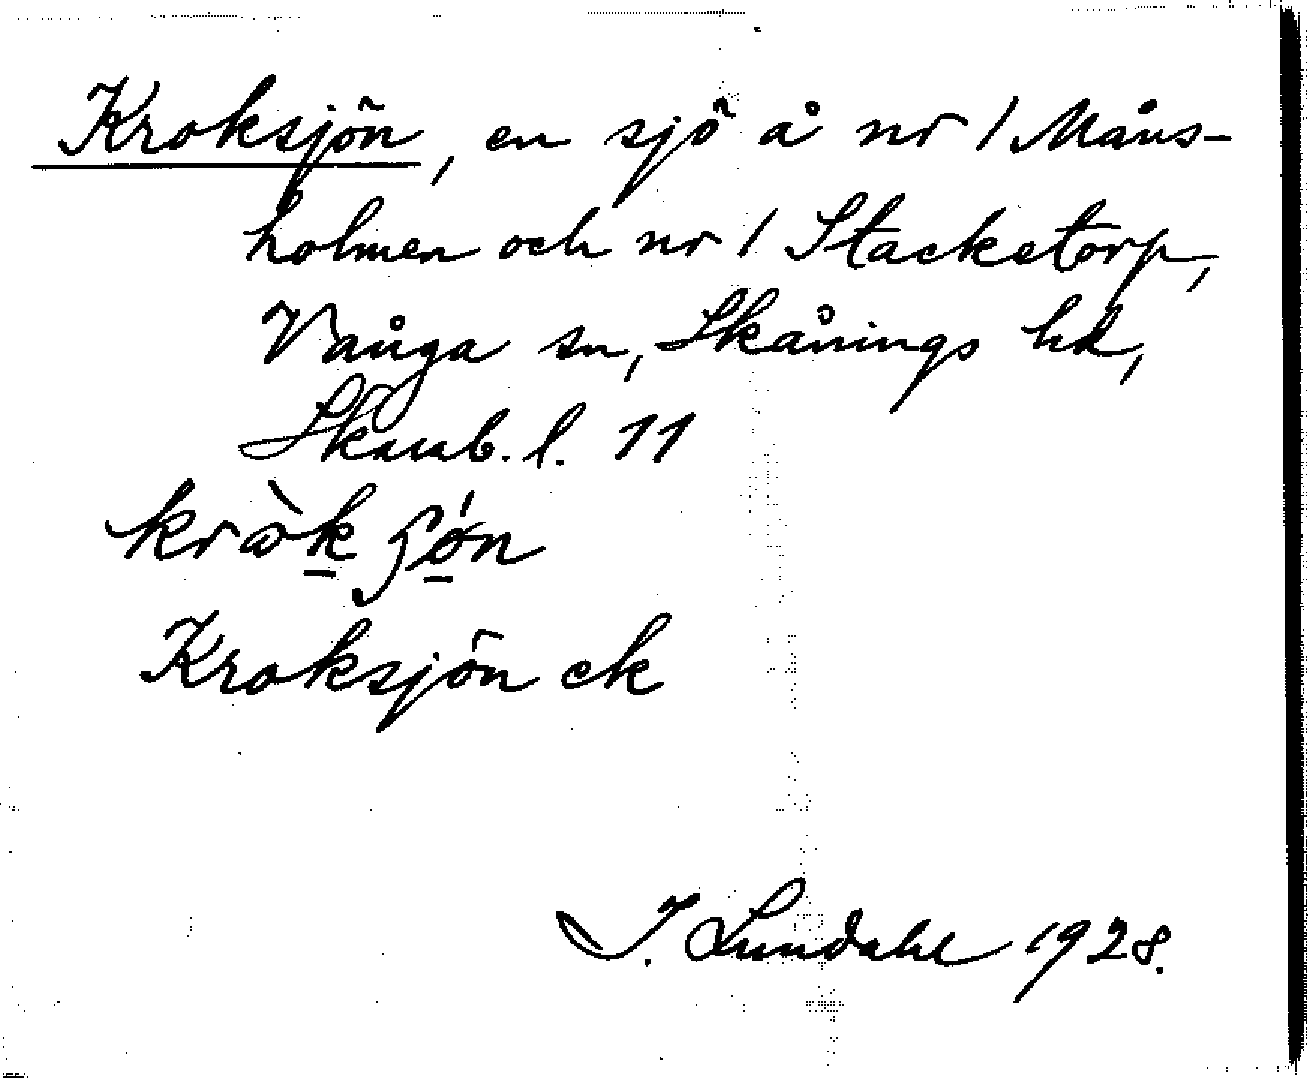 Kroksjön, en sjö å nr 1 Måns-
holmen och nr 1 Stacketorp,
Vånga sn, Skånings hd,
Skarab. l. 11
Kroksjön ek
I. Lundahl 1928.